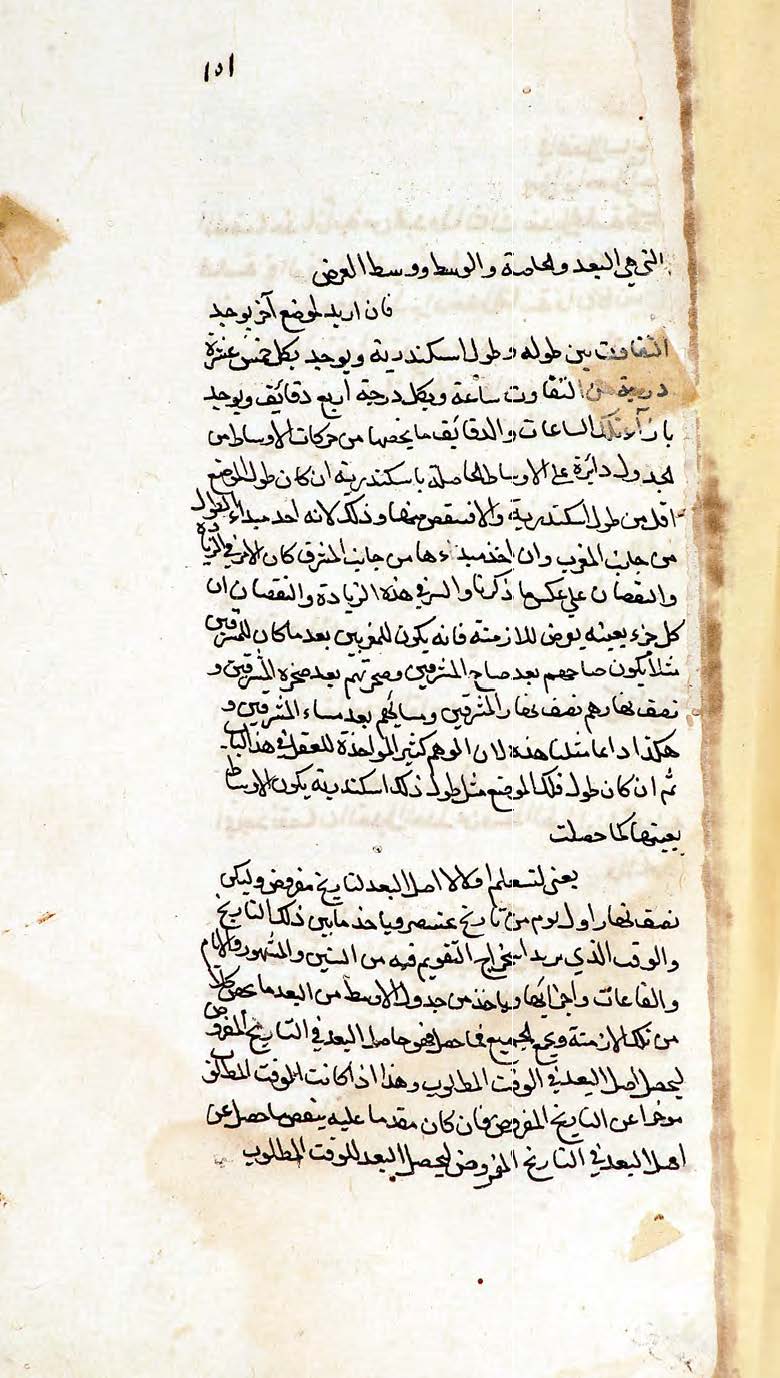 ١٥١
التي هي البعد والخاصة والوسط ووسط العرض
فان اريد لموضع آخر يوجد
التفاوت بين طوله وطول اسكندرية ويوجد بكل خمس عشرة
درجة من التفاوت ساعة وبكل درجة اربع دقايق ويوجد
بازآء تلك الساعات والدقايق ما يخصها من حركات الاوساط من
الجدول دائرة على الاوساط الحاصلة باسكندرية ان كان طول الموضع
اقل من طول اسكندرية والا فينقص منها وذلك لانه اخذ مبداء الطول
من جانب المغرب وان اخذ مبداءها من جانب المشرق كان الامر في الزيادة
والنقصان على عكس ما ذكرنا والسر في هذه الزيادة والنقصان ان
كل جزء بعينه يعرض للازمنة فانه يكون للمغربين بعد ما كان للمشرقين
مثلا يكون صباحهم بعد صباح المشرقين وضحوتهم بعد ضحوة المشرقين و
نصف نهارهم نصف نهار المشرقين ومسائهم بعد مساء المشرقين و
هكذا دائما مثلنا هذه لان الوهم كثير المواخذة للعقل في هذا الباب
ثم ان كان طول ذلك الموضع مثل طول ذلك اسكندرية يكون الاوساط
بعينها كما حصلت
يعني لتستعلم اولا لا اصل البعد لتاريخ مفروض وليكن
نصف نهار اول يوم من تاريخ بختنصر وياخذ ما بين ذلك التاريخ
والوقت الذي يريد استخراج التقويم فيه من السنين والشهور والايام
والساعات واجزائها وياخذ من جدول الاوسط من البعد ما يخص كلا
من تلك الازمنة ويجمع الجميع فما حصل فهو حاصل البعد في التاريخ المفروض
ليحصل اصل البعد في الوقت المطلوب وهذا اذا كانت الوقت المطلوب
موخرا عن التاريخ المفروض فان كان مقدما عليه ينقص ما حصل عن
اصل البعد في التاريخ المفروض ليحصل البعد للوقت المطلوب